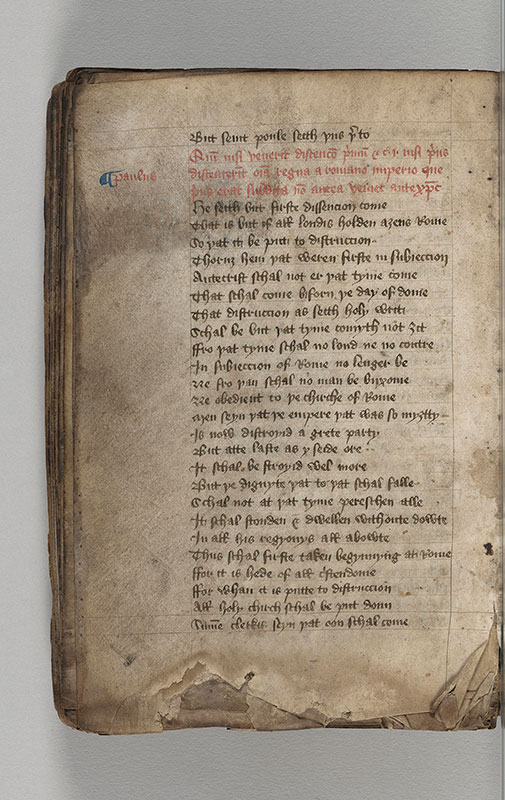 But seint poule seith þus þerto
Qm̄ nisi venerit discenco͞ primu͞ & c̉ i. nisi prius
¶ paulus
discesserit oīa regna a romano imperio que
prius erat subdita no͞ antea veniet antexpc͞
He seith but firste dissencion come
That is but if alle londis holden aȝens Rome
So þat it be putt to distruccion
Thoruȝ hem þat weren firste in subieccion
Antecrist schal not er þat tyme come
That schal come biforn þe day of dome
That distruccion as seith holy writt
Schal be but þat tyme comyth not ȝit
ffro þat tyme schal no lond ne no contre
In subieccion of Rome no lenger be
Ne fro þan schal no man be buxome
Ne obedient to þe chirche of Rome
Men seyn þat þe empere þat was so myȝtty
Is now distroyid a grete party
But atte laste as y seide ore
It schal be stroyid wel more
But þe dignyte þat to þat schal falle
Schal not at þat tyme pereschen alle
It schal stonden & dwellen withoute dowte
In alle his regyonys all abowte
Thus schal firste taken begynnyng at Rome
ffor it is hede of all cristendome
ffor whan it is putte to distruccion
All holy chirch schal be put doun
Sume clerkis seyn þat oon schal come